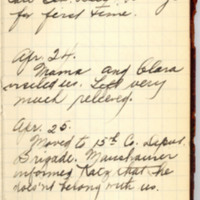 for first time.
Apr. 24.
Mama and Clara
visited us. Left very
much relieved.
Apr. 25.
Moved to 15th C. Depot
Brigade. Manshauser
informed Katz that he
does'nt belong with us.